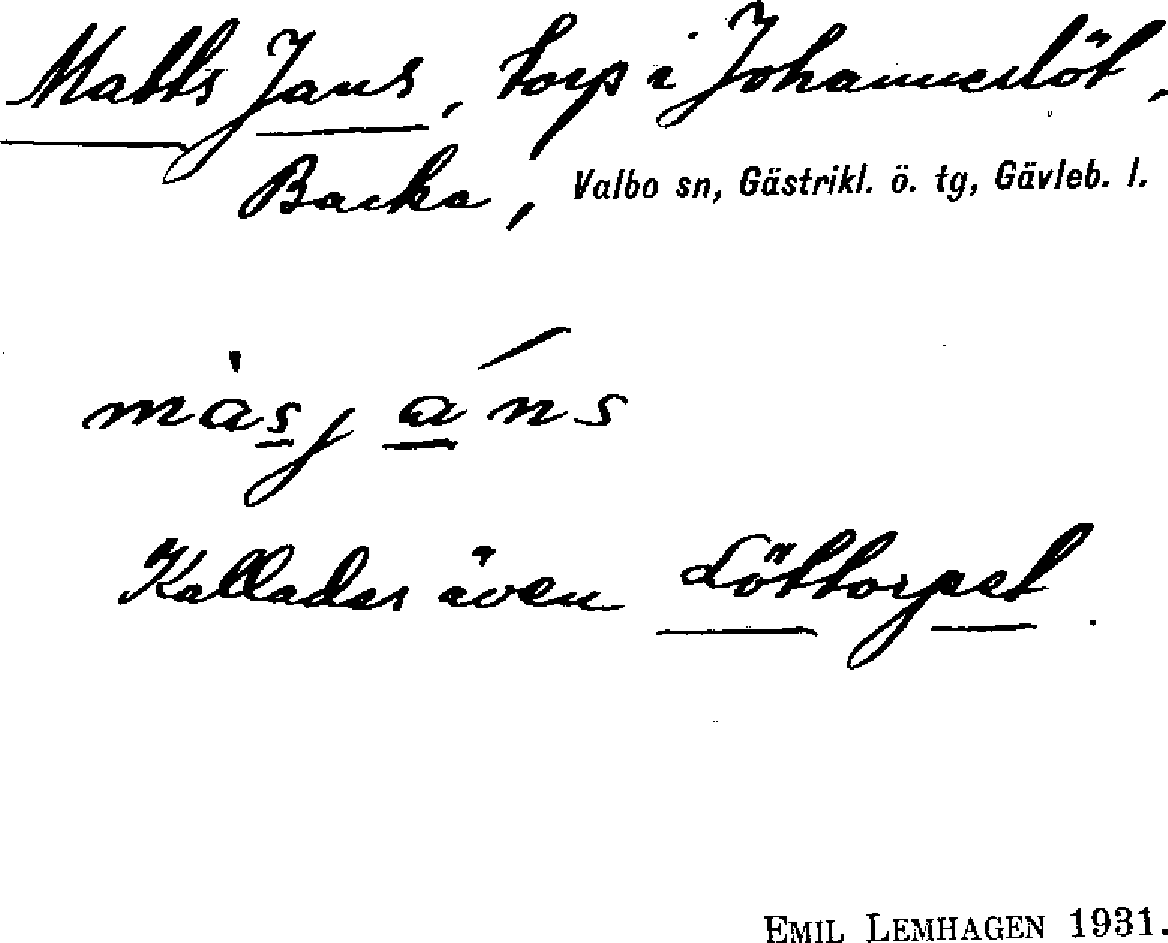 Matts Jans, torp i Johanneslöt,
Backa, Valbo sn, Gästrikl. ö. tg, Gävleb. l.
màsjáns
Kallades även Löttorpet.
EMIL LEMHAGEN 1931.